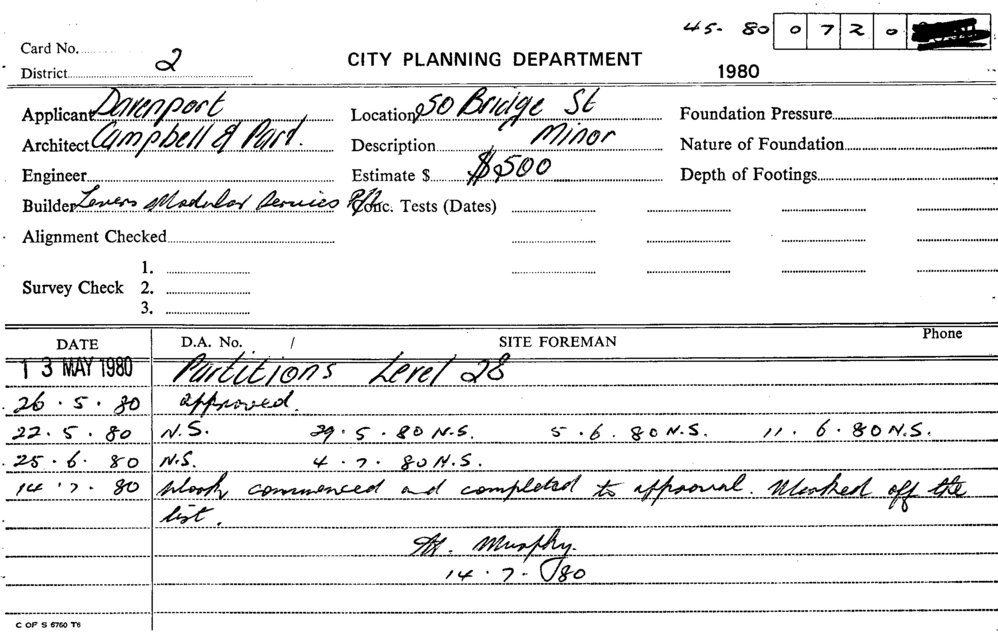 45- 80 0 7 2 0
Card No.
District 2
CITY PLANNING DEPARTMENT
1980
Applicant Davenport
Location 50 Bridge St
Foundation Pressure
Architect Campbell & Part.
Description Minor
Nature of Foundation
Engineer
Estimate $ $500
Depth of Footings
Builder Levers Modular Services P/L
Conc. Tests (Dates)
Alignment Checked
1.
Survey Check 2.
3.
DATE D.A. No. / SITE FOREMAN Phone
13 MAY 1980 Partitions Level 28
26.5.80 approved.
22.5.80 N.S. 29.5.80 N.S. 5.6.80 N.S. 11.6.80 N.S.
25.6.80 N.S. 4.7.80 N.S.
14.7.80 Work commenced and completed to approval. Marked off the
list.
Murphy.
14.7.80
C OF S 6760 T6